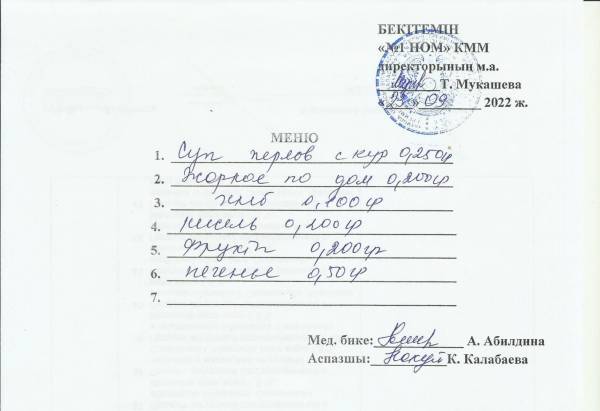 БЕКІТЕМІН
«№1 НОМ» КММ
директорының м.а.
Т. Мукашева
« » 09 2022 ж.
МЕНЮ
1. Суп перлов с кур 0,250гр
2. Жаркое по дом 0,200гр
3. хлеб 0,100гр
4. кисель 0,200гр
5. Фрукты 0,200гр
6. печенье 0,50гр
7.
Мед. бике: А. Абилдина
Аспазшы: К. Калабаева